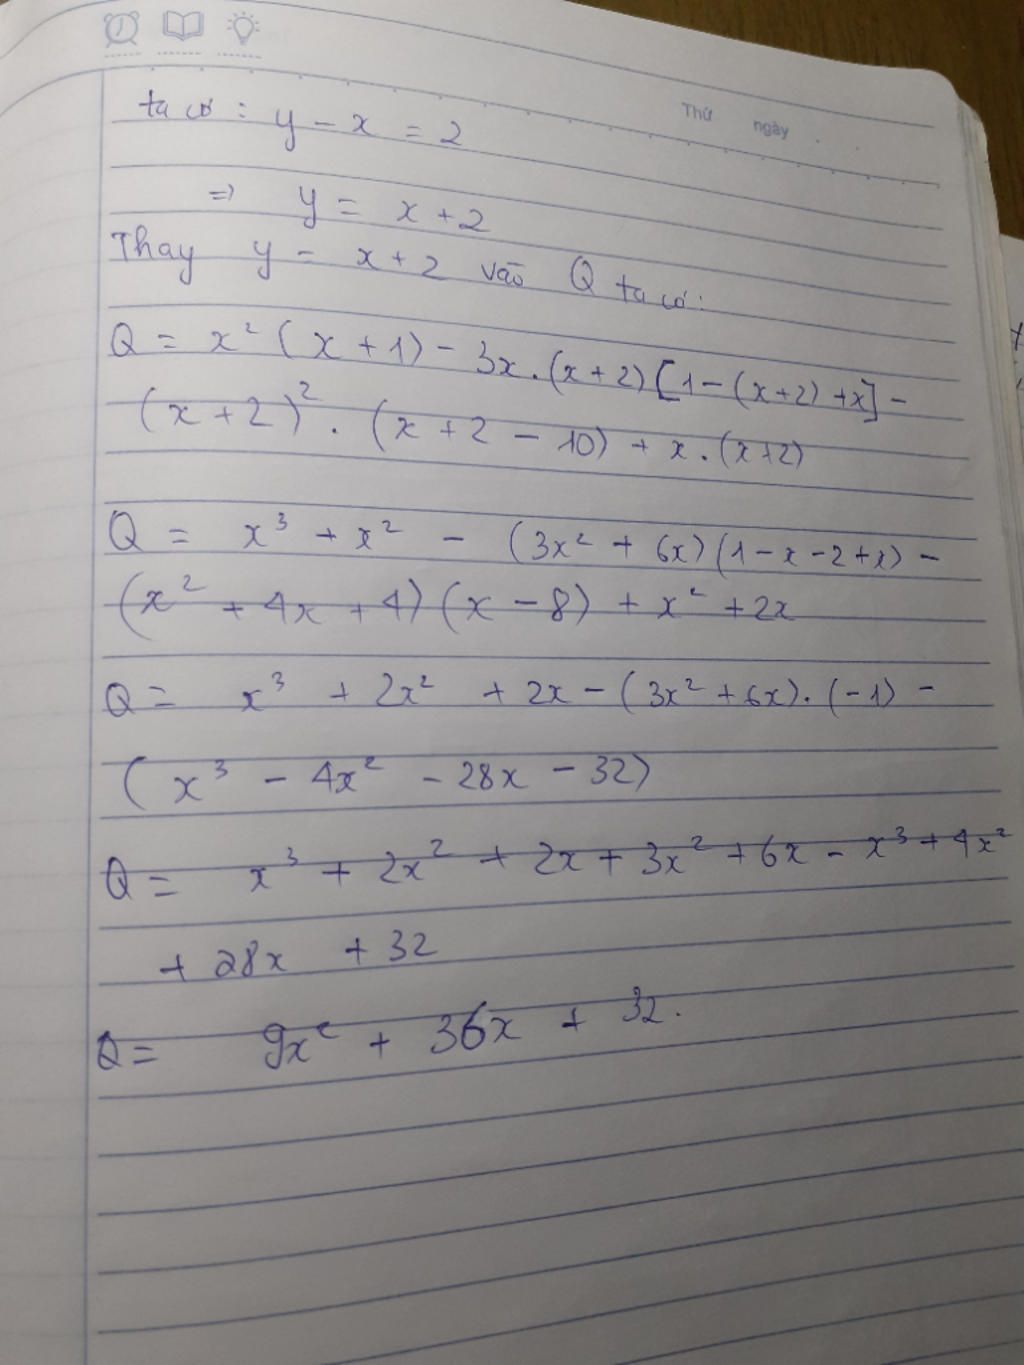 Thứ ngày
ta có : y - x = 2
=> y = x + 2
Thay y = x + 2 vào Q ta có:
Q = x² ( x + 1) - 3x . (x + 2) [1 - (x+2) + x] -
(x + 2)² . (x + 2 - 10) + x . (x+2)
Q = x³ + x² - (3x² + 6x) (1 - x - 2 + x) -
(x² + 4x + 4) (x - 8) + x² + 2x
Q = x³ + 2x² + 2x - (3x² + 6x) . (-1) -
( x³ - 4x² - 28x - 32)
Q = x³ + 2x² + 2x + 3x² + 6x - x³ + 4x²
+ 28x + 32
Q = 9x² + 36x + 32.